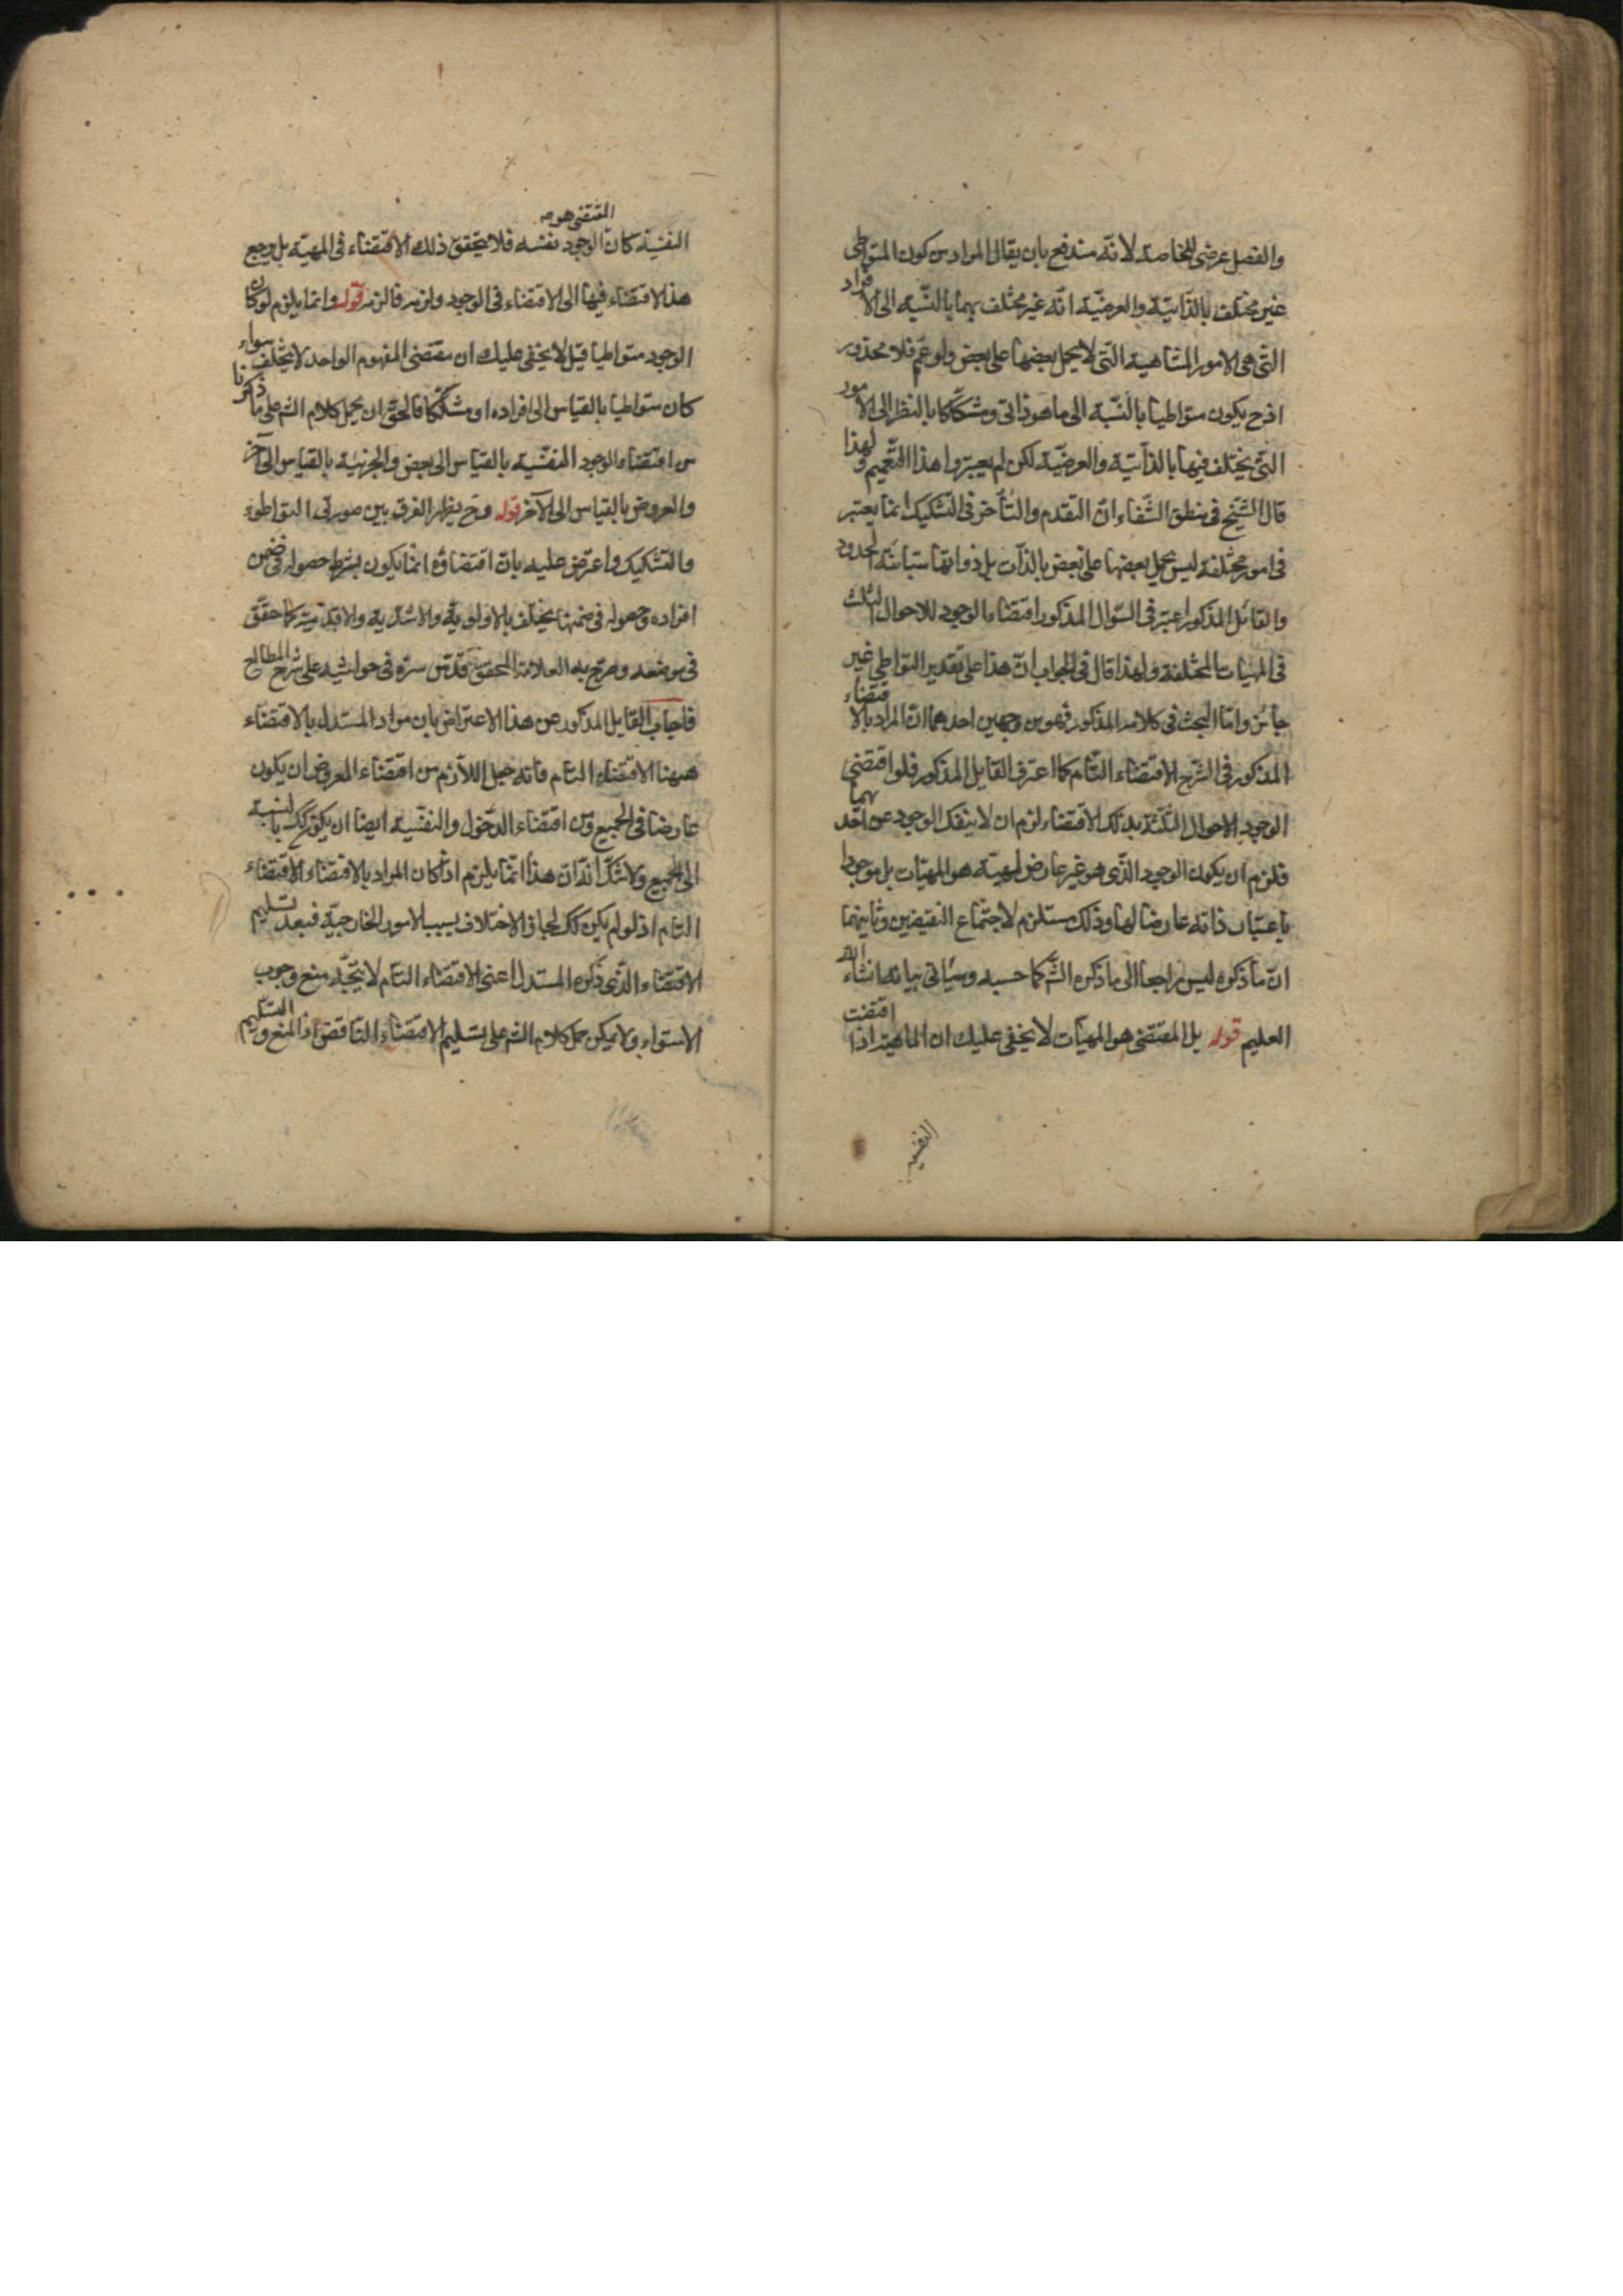 والفصل عرضى للخاصة لانه مندفع بان يقال المراد من كون المتواطى
غير مختلف بالذاتية والعرضية انه غير مختلف بهما بالنسبة الى الافراد
التى هى الامور المتناهية التى لا يحمل بعضها على بعض ولو عمم فلا محذور
اذ ح يكون متواطيا بالنسبة الى ما هو ذاتى ومشككا بالنظر الى الامور
التى يختلف فيها بالذاتية والعرضية لكن لم يعتبروا هذا التعميم ولهذا
قال الشيخ فى منطق الشفاء ان التقدم والتأخر فى التشكيك انما يعتبر
فى امور مختلفة ليس يحمل بعضها على بعض بالذات بل ذواتها متباينة الحدود
والقائل المذكور اعتبر فى السؤال المذكور اقتضاء الوجود للاحوال الثلث
فى المهيات المختلفة ولهذا قال فى الجواب ان هذا على تقدير التواطى غير
جائز واما البحث فى كلامه المذكور فهو من وجهين احدهما ان المراد بالاقتضاء
المذكور فى الشرح الاقتضاء التام كما اعترف القايل المذكور فلو اقتضى
الوجود الاحوال الثلثة بذلك الاقتضاء لزم ان لا ينفك الوجود عن احد بهما
فلزم ان يكون الوجود الذى هو غير عارض لمهية هو المهيات بل موجودا
باعتبار ذاته عارضا لها وذلك مستلزم لاجتماع النقيضين وثانيهما
ان ما ذكره ليس راجعا الى ما ذكره الش كما حسبه وسيأتى بيانه انشاء الله
العليم قوله بل المقتضى هو المهيات لا يخفى عليك ان الماهية اذا اقتضت
النفسية
المقتضى هو صه
النفسية كان الوجود نفسه فلا يتحقق ذلك الاقتضاء فى المهية بل يرجع
هذا الاقتضاء فيها الى الاقتضاء فى الوجود ولزمه ما لزمه قوله وانما يلزم لو كان
الوجود متواطيا قيل لا يخفى عليك ان مقتضى المفهوم الواحد لا يختلف سواء
كان متواطيا بالقياس الى افراده او مشككا فالحق ان يحمل كلام الش على ما ذكرنا
من اقتضاء الوجود النفسية بالقياس الى بعض والجزئية بالقياس الى آخر
والعروض بالقياس الى الآخر قوله وح يظهر الفرق بين صورتى التواطوء
والتشكيك واعترض عليه بان اقتضاؤه انما يكون بشرط حصوله فى ضمن
افراده وحصوله فى ضمنها يختلف بالاولوية والاشدية والاقدمية كما حقق
فى موضعه وصرح به العلامة المحقق قدس سره فى حواشيه على شرح المطالع
فاجاب القايل المذكور عن هذا الاعتراض بان مراد المستدل بالاقتضاء
ههنا الاقتضاء التام فانه جعل اللازم من اقتضاء المعروض ان يكون
عارضا فى الجميع ومن اقتضاء الدخول والنفسية ايضا ان يكون كك بالنسبة
الى الجميع ولا شك ان هذا انما يلزم اذا كان المراد بالاقتضاء الاقتضاء
التام اذ لو لم يكن كك لجاز الاختلاف بسبب الامور الخارجية فبعد تسليم
الاقتضاء الذى ذكره المستدل اعنى الاقتضاء التام لا يتجه منع وجوب
الاستواء ولا يمكن حمل كلام الش على تسليم الاقتضاء الناقص اذ المنع والتسليم